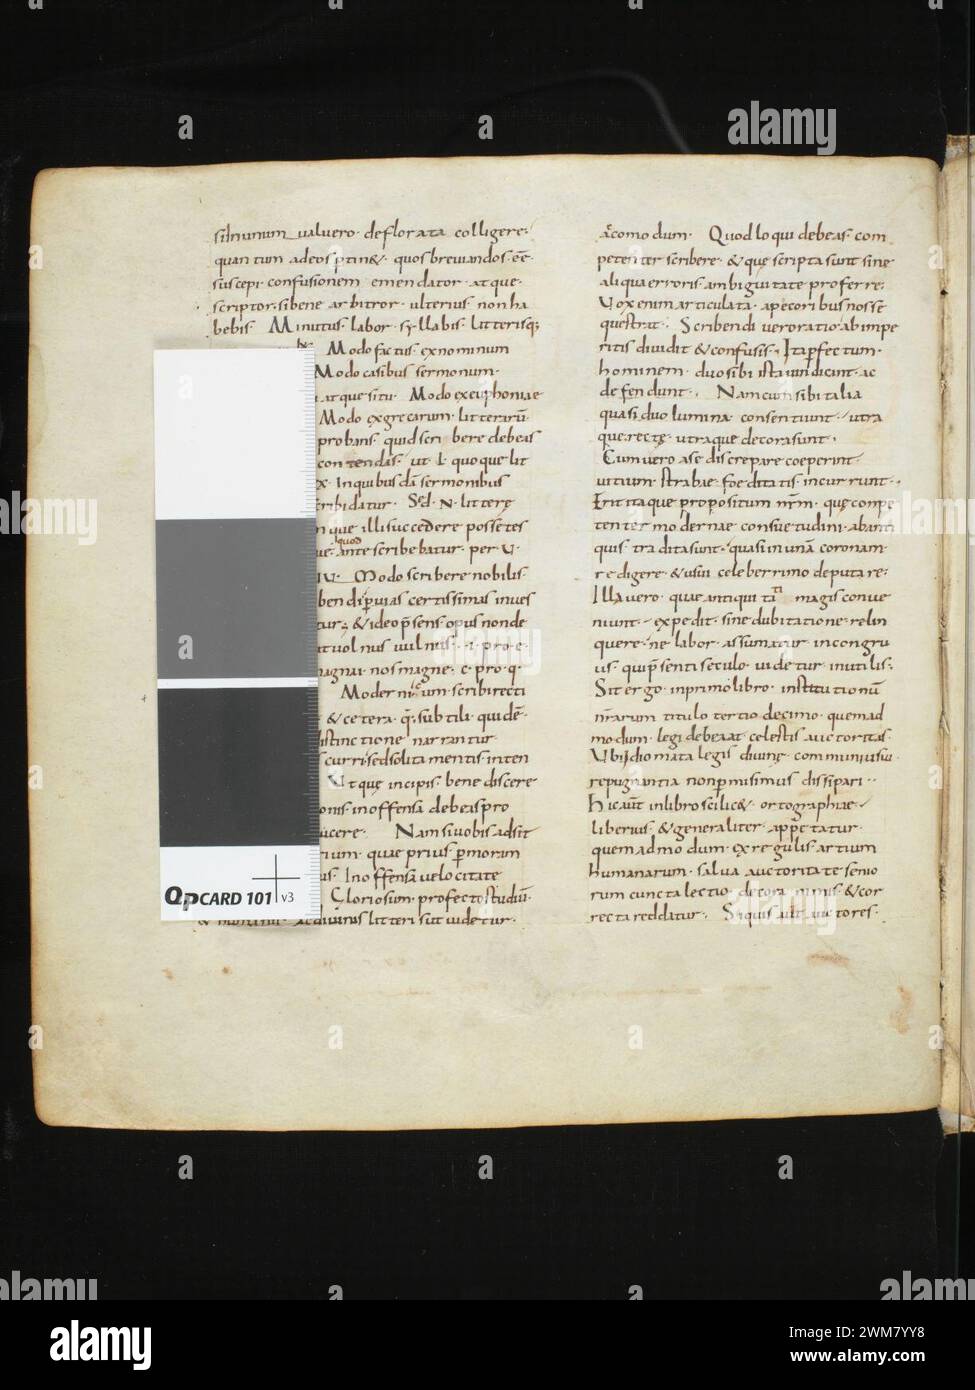 simunum valvero· deflorata colligere·
quantum adeos ptin&· quos breviandos eē·
suscepi· confusionem emendator· atque·
scriptor· sibene arbitror· ulterius non ha
bebis· Minutus· labor· syllabis· litterisq;
Modo factus· exnominum
Modo casibus sermonum·
atquesitu· Modo exeuphoniae
Modo exgrecarum· litterarū·
probans· quid scribere debeas
contendas· ut· l· quoque lit
Inquibusdā sermonibus
cribidatur· Sed· N· litterę
que· illi succedere posset es
quod
ante scribebatur· per· V·
Modo scribere nobilis·
certissimas inves
& ideo psens· opus nonde
vulnus· ·i· pro· e·
magnai· nos magne· e· pro· q·
scribi recti
& cetera· q· subtili· quidē·
distinctione narrantur·
curri· sedsolita mentis· inten
Vtque incipis· bene discere
onis· inoffensa debeas pro
ducere· Nam si vobis adsit
rium· quae prius pmorum
us· Inoffensa velocitate
Gloriosum· profecto studiū·
& humanis· ac divinis litteris ut videtur·
accomodum· Quod loqui debeas· com
petenter scribere· & quę scripta sunt sine
aliqua erroris· ambiguitate proferre·
Vox enim articulata· a pecoribus nos se
questrat· Scribendi vero ratio ab impe
ritis dividit & confusis· Ita pfectum·
hominem· duo sibi ista vindicant· ac
defendunt· Nam cum sibi talia
quasi duo lumina consentiunt· utra
que· rectę· utraque decora sunt·
Cum vero a se discrepare coeperint·
vitium· strabae· foeditatis incurrunt·
Erit itaque propositum nrm· quę conpe
tenter modernae consuetudini· abanti
quis· tradita sunt· quasi in unā coronam·
redigere· & usui celeberrimo deputare·
Illa vero· quae antiquitati magis conve
niunt· expedit· sine dubitatione· relin
quere· ne labor· assumatur incongru
us· qui psenti sęculo· videtur· inutilis·
Sit ergo· inprimo libro· institutionū
nrarum titulo tertio decimo· quemad
modum· legi debeat· celestis auctoritas·
Vbi idiomata legis divinę· communi usui·
repugnantia non pmisimus· dissipari·
Hic aūt in libro scilic&· ortographiae·
liberius· & generaliter· appetatur·
quemadmodum· ex regulis artium
humanarum· salva auctoritate senio
rum cuncta lectio· decora nimis & cor
recta reddatur· Siquis· ult· auctores·
QPCARD 101 v3
alamy
Image ID: 2WM7YY8
www.alamy.com